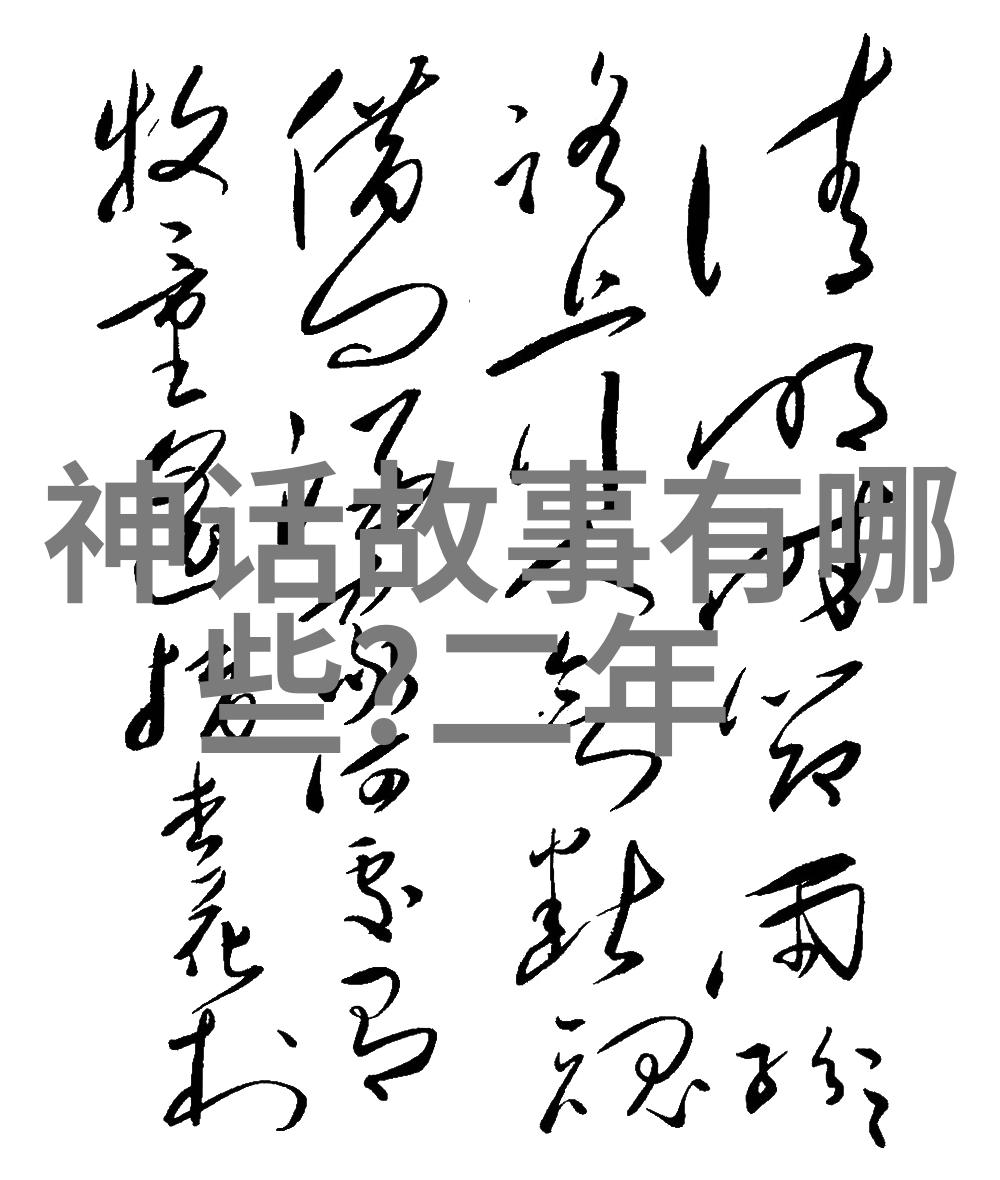 清明時節雨紛々
路上行人欲断魂
借問酒家何處有
牧童遙指杏花村
神话故事有哪
些?二年